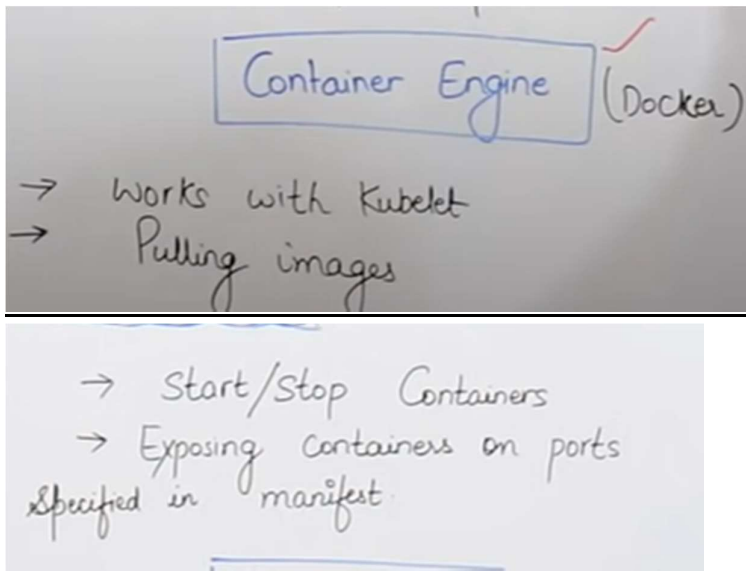 Container Engine (Docker)
→ Works with Kubelet
→ Pulling images
→ Start/Stop Containers
→ Exposing Containers on ports
Specified in manifest.